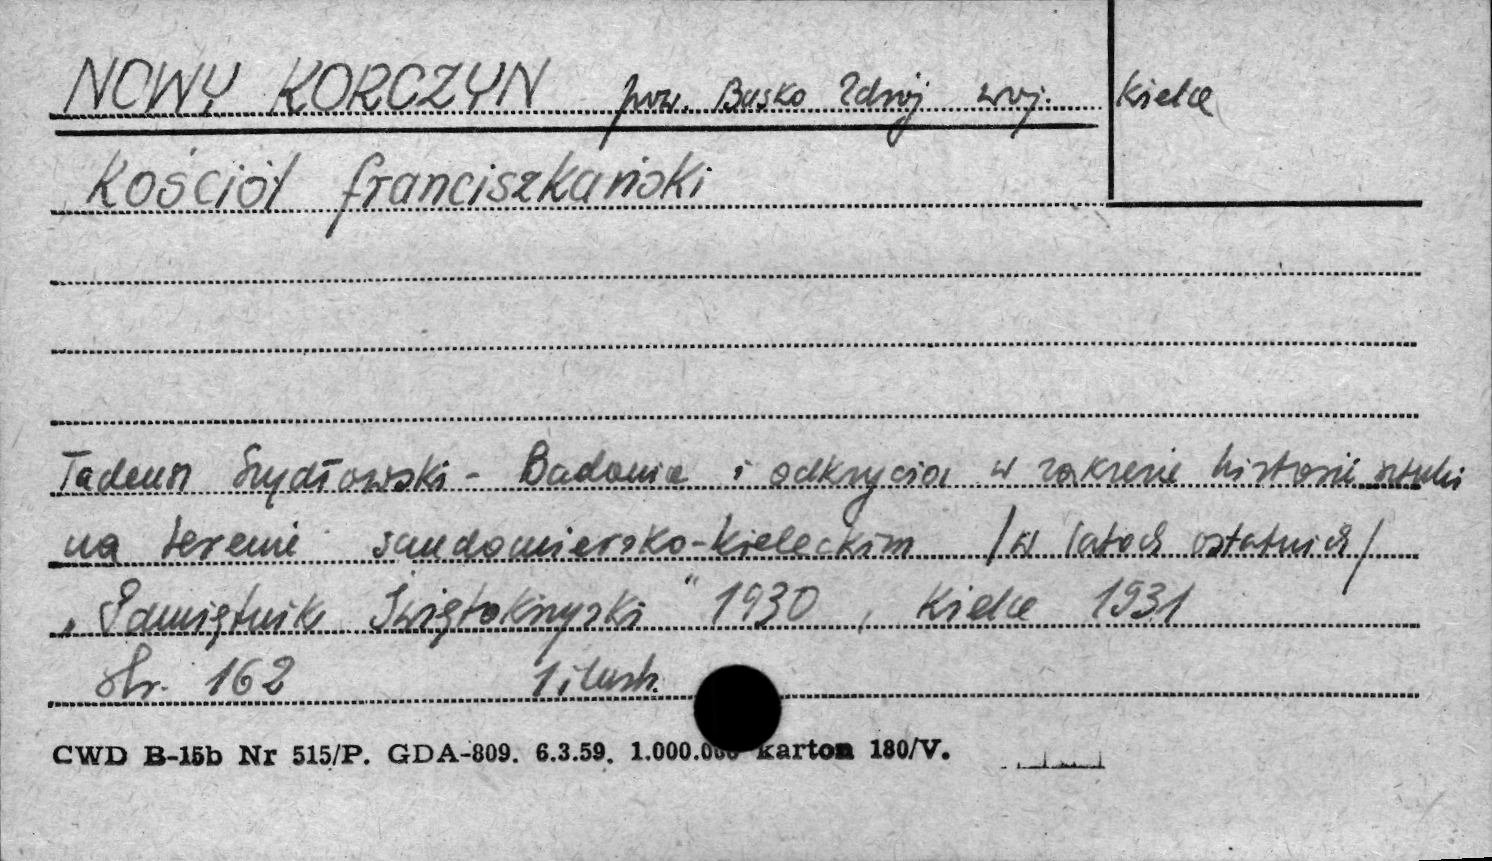 NOWY KORCZYN pow. Busko Zdrój woj. Kielce
Kościół franciszkański
Tadeusz Szydłowski - Badania i odkrycia w zakresie historii sztuki
na terenie sandomiersko-kieleckim /w latach ostatnich/
„Pamiętnik Świętokrzyski" 1930, Kielce 1931
str. 162 1 ilustr.
CWD B-15b Nr 515/P. GDA-809. 6.3.59. 1.000.000 karton 180/V.